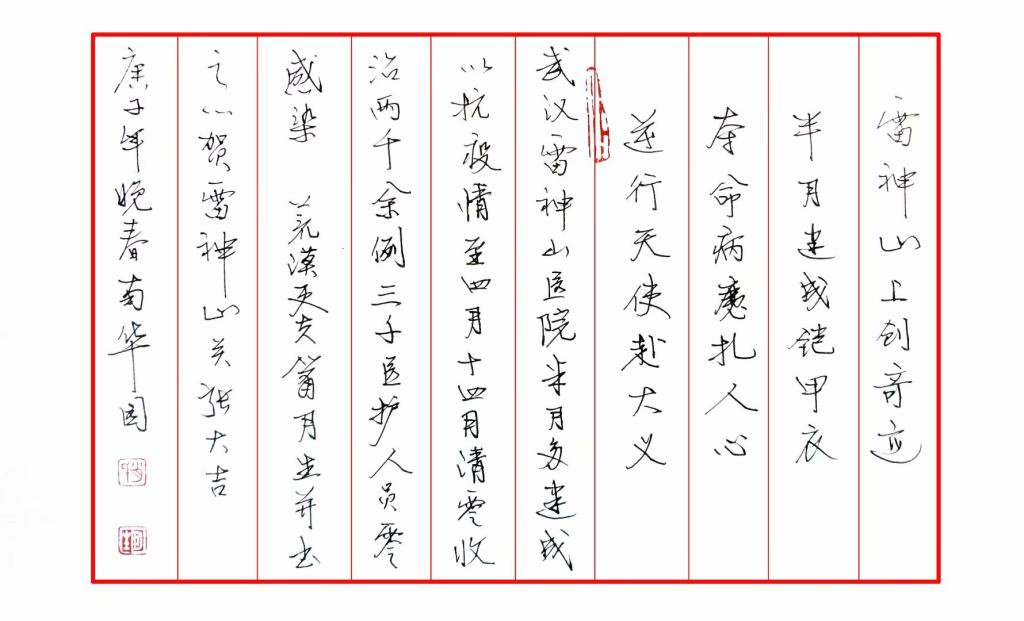 雷神山上创奇迹
半月建成铠甲衣
夺命病魔扎人心
逆行天使赴大义
武汉雷神山医院半月多建成
以抗疫情至四月十四月清零收
治两千余例三千医护人员零
感染 荒漠更夫月生并书
之以贺雷神山关张大吉
庚子年晚春南华园